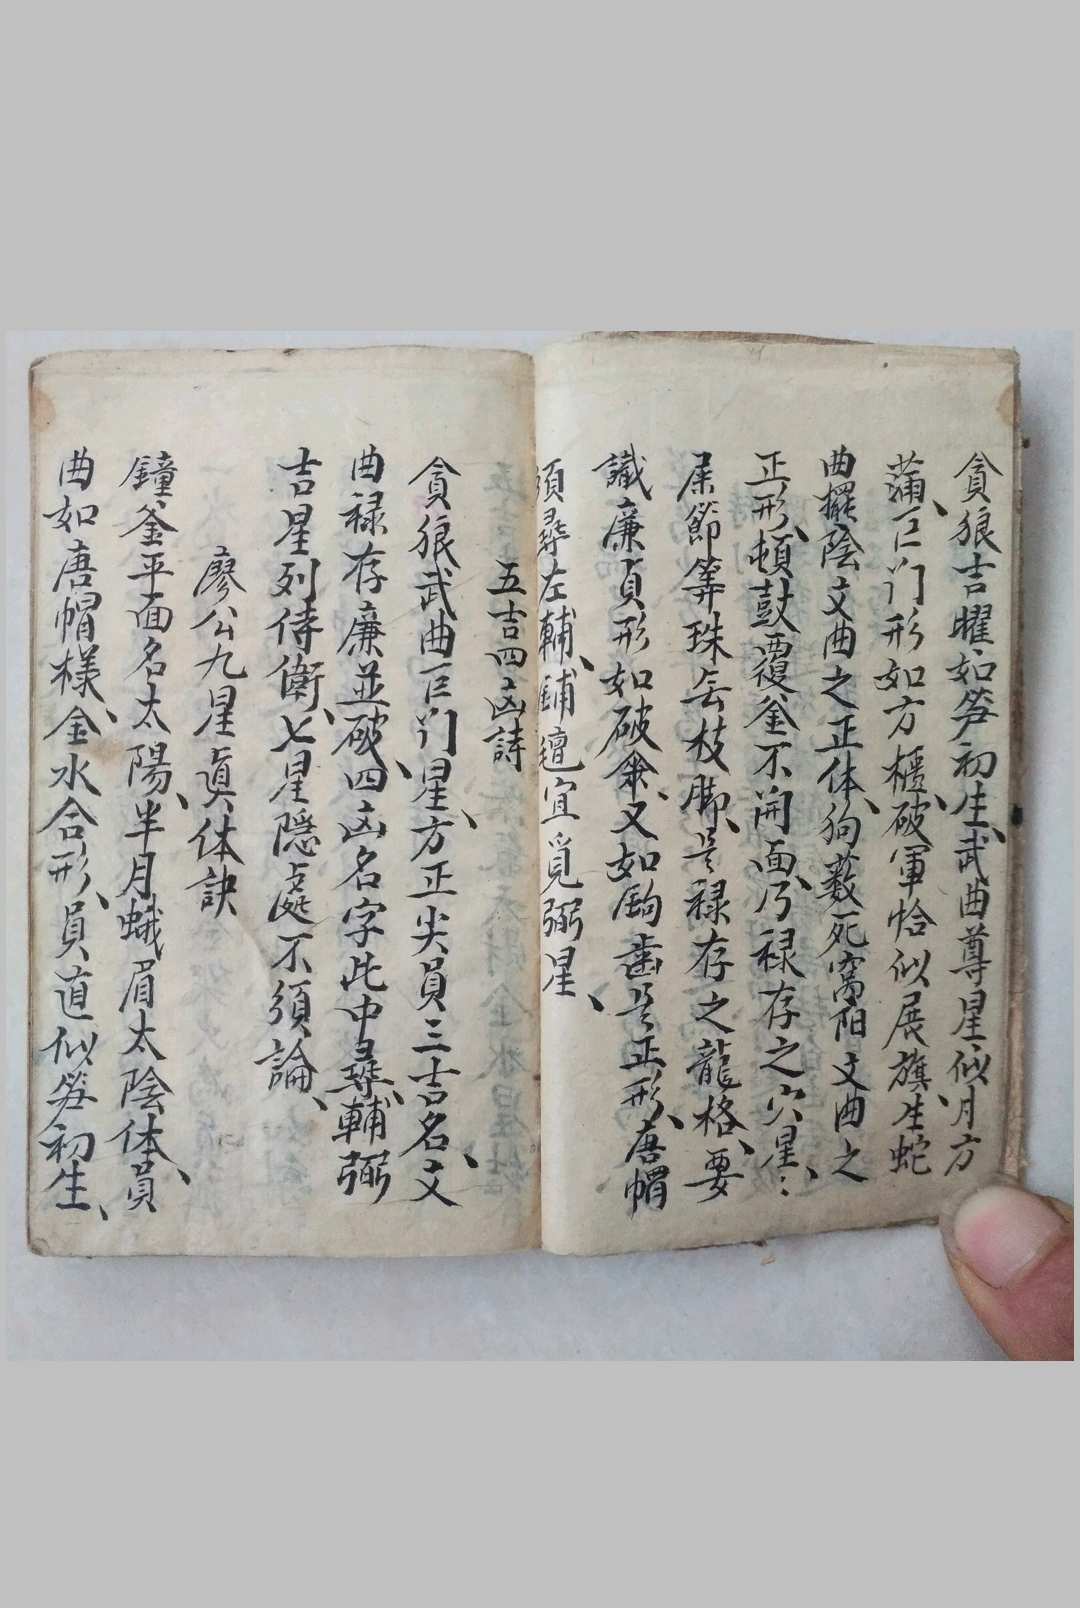 貪狼吉曜如笋初生武曲尊星似月方
蒲巨门形如方櫃破軍恰似展旗生蛇
曲擺陰文曲之正体狗薮死窩阳文曲之
正形頓鼓覆釜不開面乃禄存之穴星
屎節等珠無枝脚是禄存之龍格要
識廉貞形如破傘又如齒是正形唐帽
頭尋左輔鋪氊宜覓弼星
五吉四凶詩
貪狼武曲巨门星方正尖員三吉名文
曲禄存廉並破四凶名字此中尋輔弼
吉星列侍衛七星隱處不須論
廖公九星真体訣
鐘釜平面名太陽半月蛾眉太陰体員
曲如唐帽樣金水合形員直似笋初生